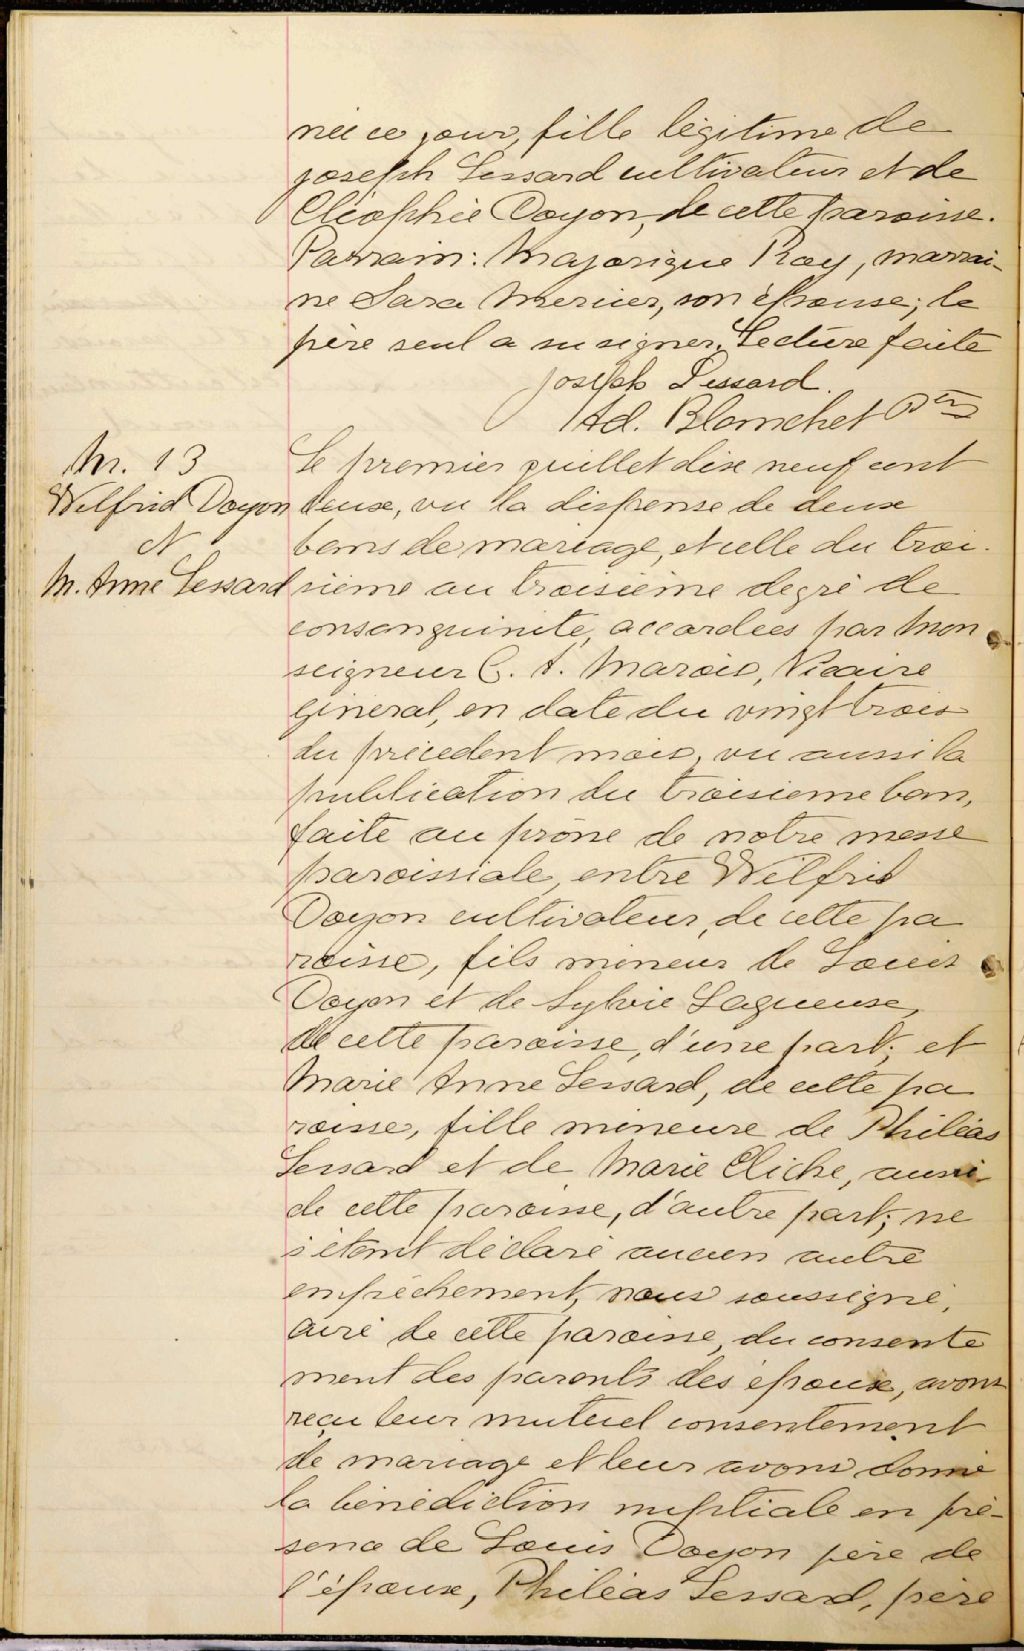 née ce jour, fille légitime de
joseph Lessard cultivateur et de
Cléophée Doyon, de cette paroisse.
Parrain: Majorique Roy, marrai-
ne Sara Mercier, son épouse; le
père seul a su signer. Lecture faite
Joseph Lessard.
Ad. Blanchet Ptre
M. 13
Wilfrid Doyon
et
M. Anne Lessard
Le premier juillet dix neuf cent
deux, vu la dispense de deux
bans de mariage, et celle du troi-
sième au troisième degré de
consanguinité, accordées par Mon
seigneur C. A. Marois, Vicaire
général, en date du vingt trois
du précédent mois, vu aussi la
publication du troisième ban,
faite au prône de notre messe
paroissiale, entre Wilfrid
Doyon cultivateur, de cette pa
roisse, fils mineur de Louis
Doyon et de Sylvie Lagueuse,
de cette paroisse, d'une part; et
Marie Anne Lessard, de cette pa
roisse, fille mineure de Philéas
Lessard et de Marie Cliche, aussi
de cette paroisse, d'autre part; ne
s'étant déclaré aucun autre
empêchement, nous soussigné,
curé de cette paroisse, du consente
ment des parents des époux, avons
reçu leur mutuel consentement
de mariage et leur avons donné
la bénédiction nuptiale en pré-
sence de Louis Doyon père de
l'époux, Philéas Lessard, père